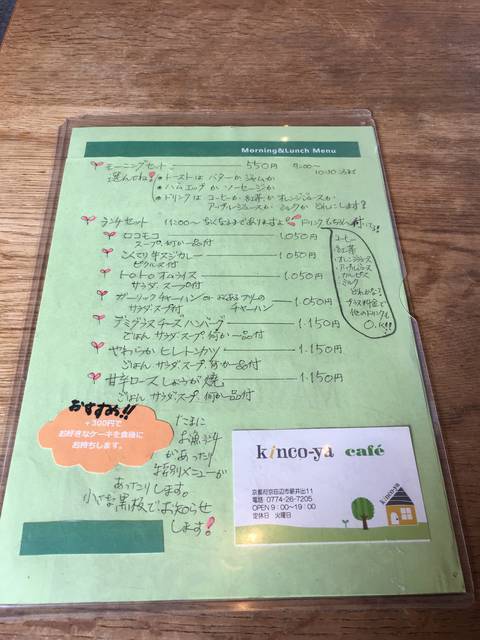 Morning&Lunch Menu
モーニングセット 550円 9:00〜
選んでね! トーストは バターか ジャムか 10:30
ハムエッグか ソーセージか
ドリンクは コーヒーか 紅茶か オレンジジュースか
アップルジュースか ミルクか どれにします?
ランチセット 11:00〜 なくなるまでありますよ!! ドリンク
ロコモコ 1,050円
スープ、何か一品付
こんてり牛スジカレー 1,050円
ピクルス付
トロトロ オムライス 1,050円
サラダ スープ付
ガーリックチャーハン or チャーハン 1,050円
サラダ スープ付
デミグラスチーズハンバーグ 1,150円
ごはん サラダ、スープ、何か一品付
やわらかヒレトンカツ 1,150円
ごはん サラダ、スープ、何か一品付
甘辛ロースしょうが焼 1,150円
ごはん サラダ、スープ、何か一品付
コーヒー
紅茶
オレンジジュース
アップルジュース
カルピス
ミルク
どれかな?
プラス料金で
他のドリンクも
O.K!!
おすすめ!!
+300円で
お好きなケーキを食後に
お持ちします。
たまに
お魚
があったり
特別メニューが
あったりします。
小さな黒板でお知らせ
します!
kinco-ya café
京都府京田辺市薪井出11
電話 0774-26-7205
OPEN 9:00〜19:00
定休日 火曜日
kinco-ya